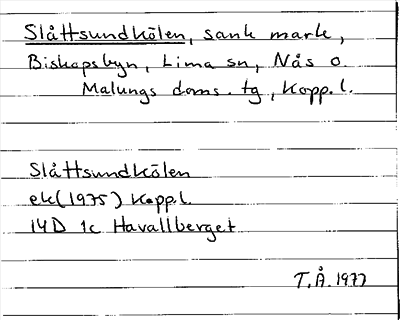 Slåttsundkölen, sank mark,
Biskopsbyn, Lima sn, Nås o.
Malungs doms. tg, Kopp. l.
Slåttsundkölen
ek (1975) Kopp.l.
14D 1c Havallberget
T.Å. 1977